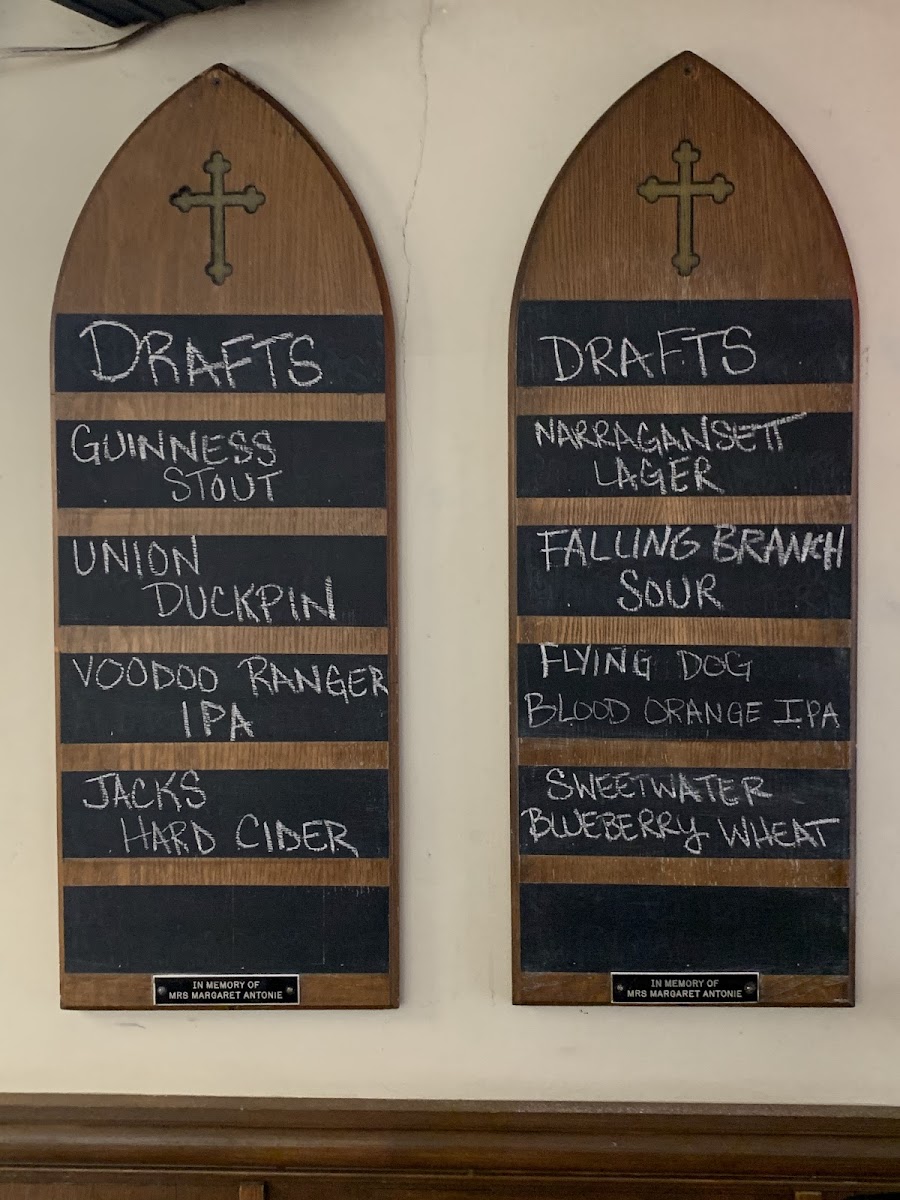 DRAFTS
GUINNESS
STOUT
UNION
DUCKPIN
VOODOO RANGER
IPA
JACKS
HARD CIDER
IN MEMORY OF
MRS MARGARET ANTONIE
DRAFTS
NARRAGANSETT
LAGER
FALLING BRANCH
SOUR
FLYING DOG
BLOOD ORANGE IPA
SWEETWATER
BLUEBERRY WHEAT
IN MEMORY OF
MRS MARGARET ANTONIE